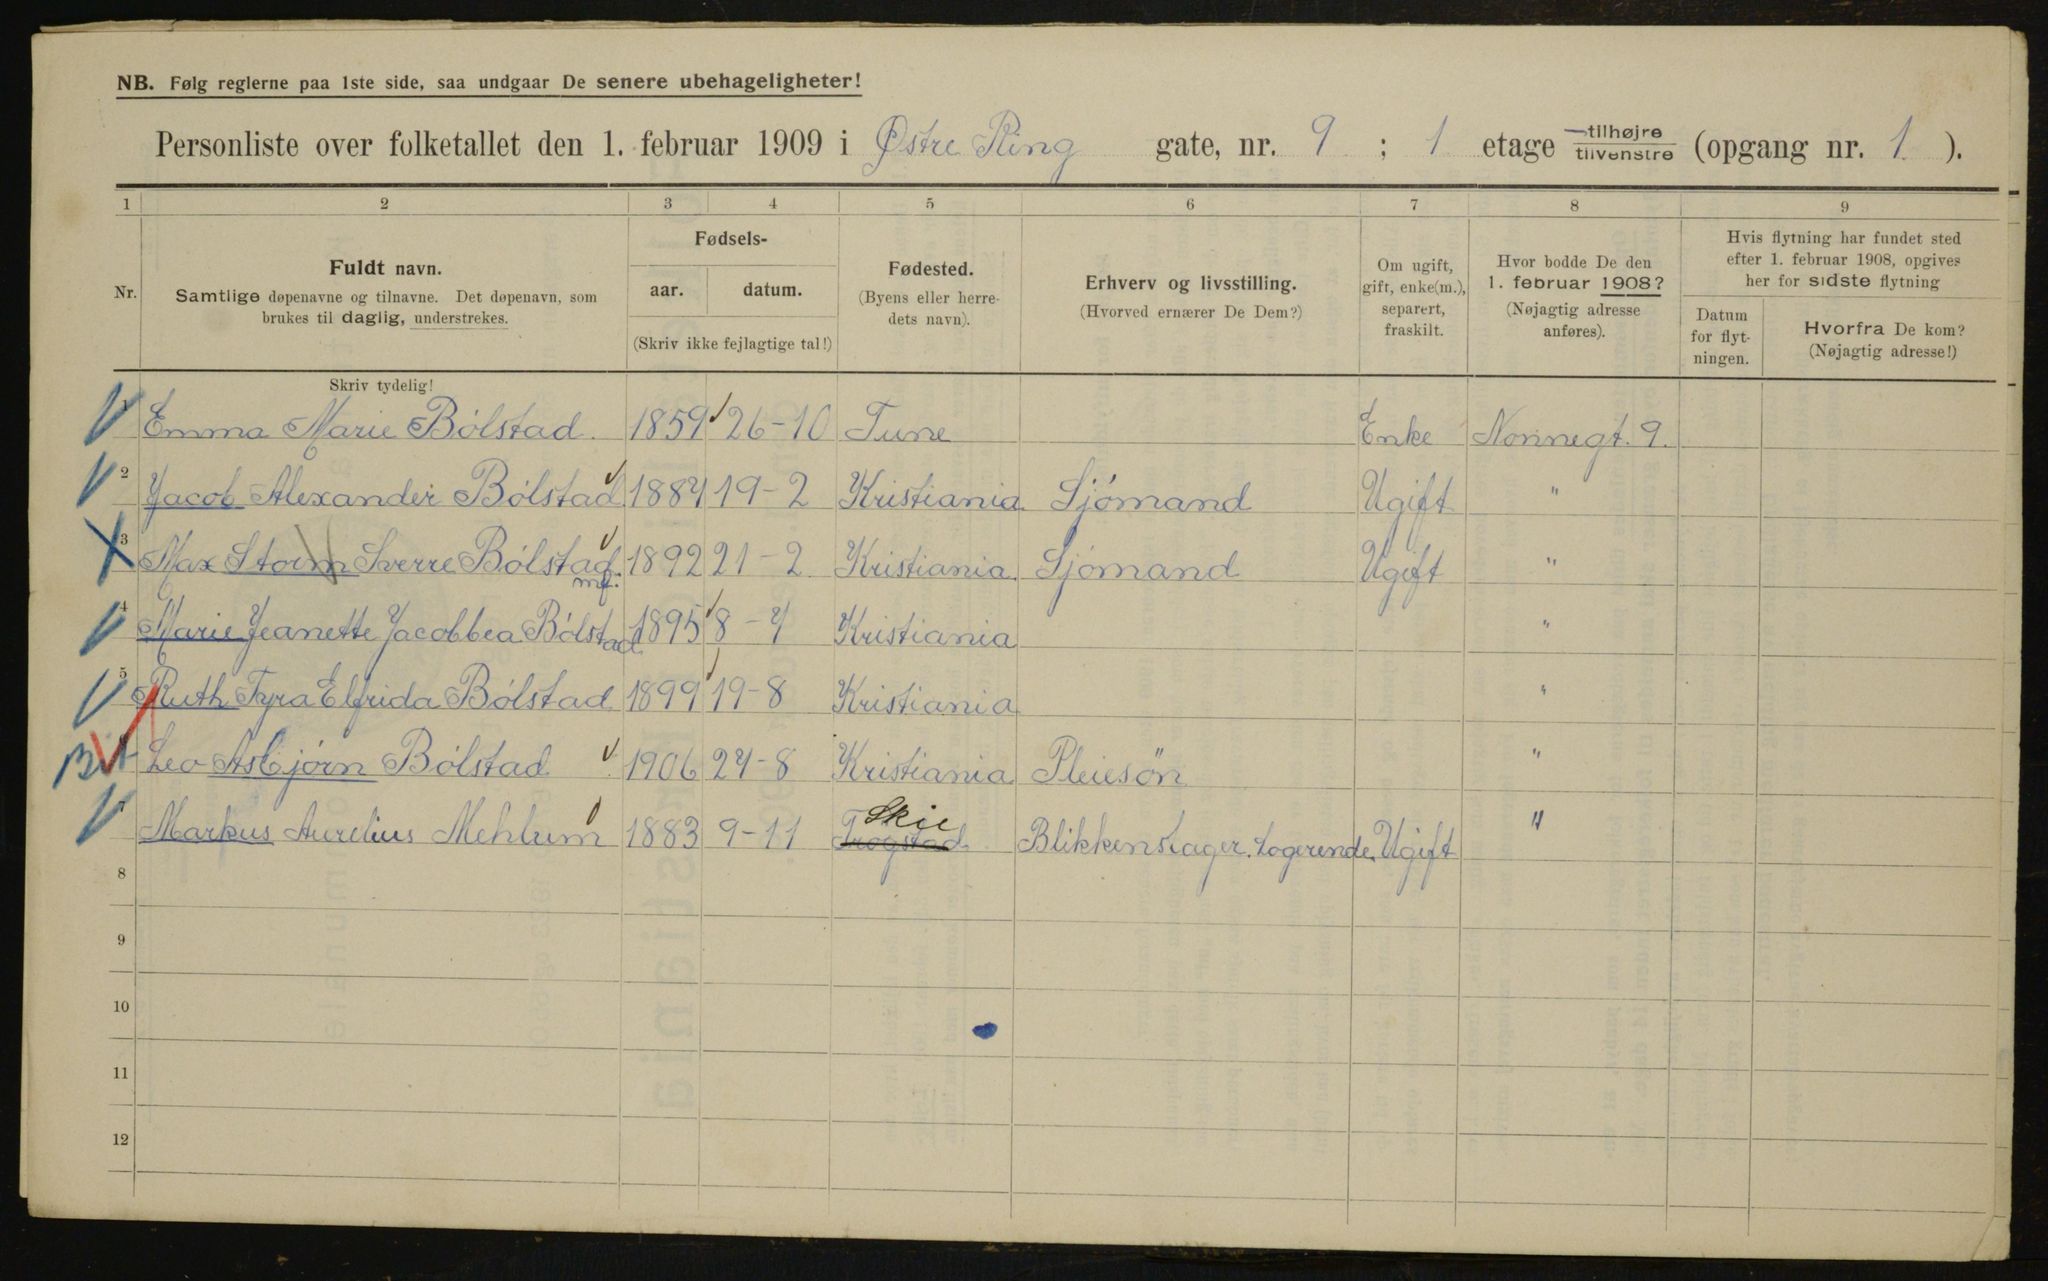 NB. Følg reglerne paa 1ste side, saa undgaar De senere ubehageligheter!
Personliste over folketallet den 1. februar 1909 i Østre Ring gate, nr. 9 ; 1 etage tilhøjre/tilvenstre (opgang nr. 1 ).
1 2 3 4 5 6 7 8 9
Nr.
Fuldt navn.
Samtlige døpenavne og tilnavne. Det døpenavn, som
brukes til daglig, understrekes.
Skriv tydelig!
Fødsels-
aar. datum.
(Skriv ikke fejlagtige tal!)
Fødested.
(Byens eller herre-
dets navn).
Erhverv og livsstilling.
(Hvorved ernærer De Dem?)
Om ugift,
gift, enke(m.),
separert,
fraskilt.
Hvor bodde De den
1. februar 1908?
(Nøjagtig adresse
anføres).
Hvis flytning har fundet sted
efter 1. februar 1908, opgives
her for sidste flytning
Datum
for flyt-
ningen.
Hvorfra De kom?
(Nøjagtig adresse!)
Emma Marie Bólstad. 1859 26-10 Tune Enke Nonnegt. 9.
2 Jacob Alexander Bólstad 1884 19-2 Kristiania Sjómand Ugift "
3 Max Storm Sverre Bólstad. 1892 21-2 Kristiania Sjómand Ugift "
mf.
4 Marie Jeanette Jacobbea Bólstad 1895 8-4 Kristiania "
5 Ruth Tyra Elfrida Bólstad 1899 19-8 Kristiania "
Leo Asbjórn Bólstad 1906 24-8 Kristiania Pleiesön "
Skie
Markus Aurelius Mehlum 1883 9-11 Trøgstad Blikkenslager. Logerende. Ugift "
8
9
10
11
12